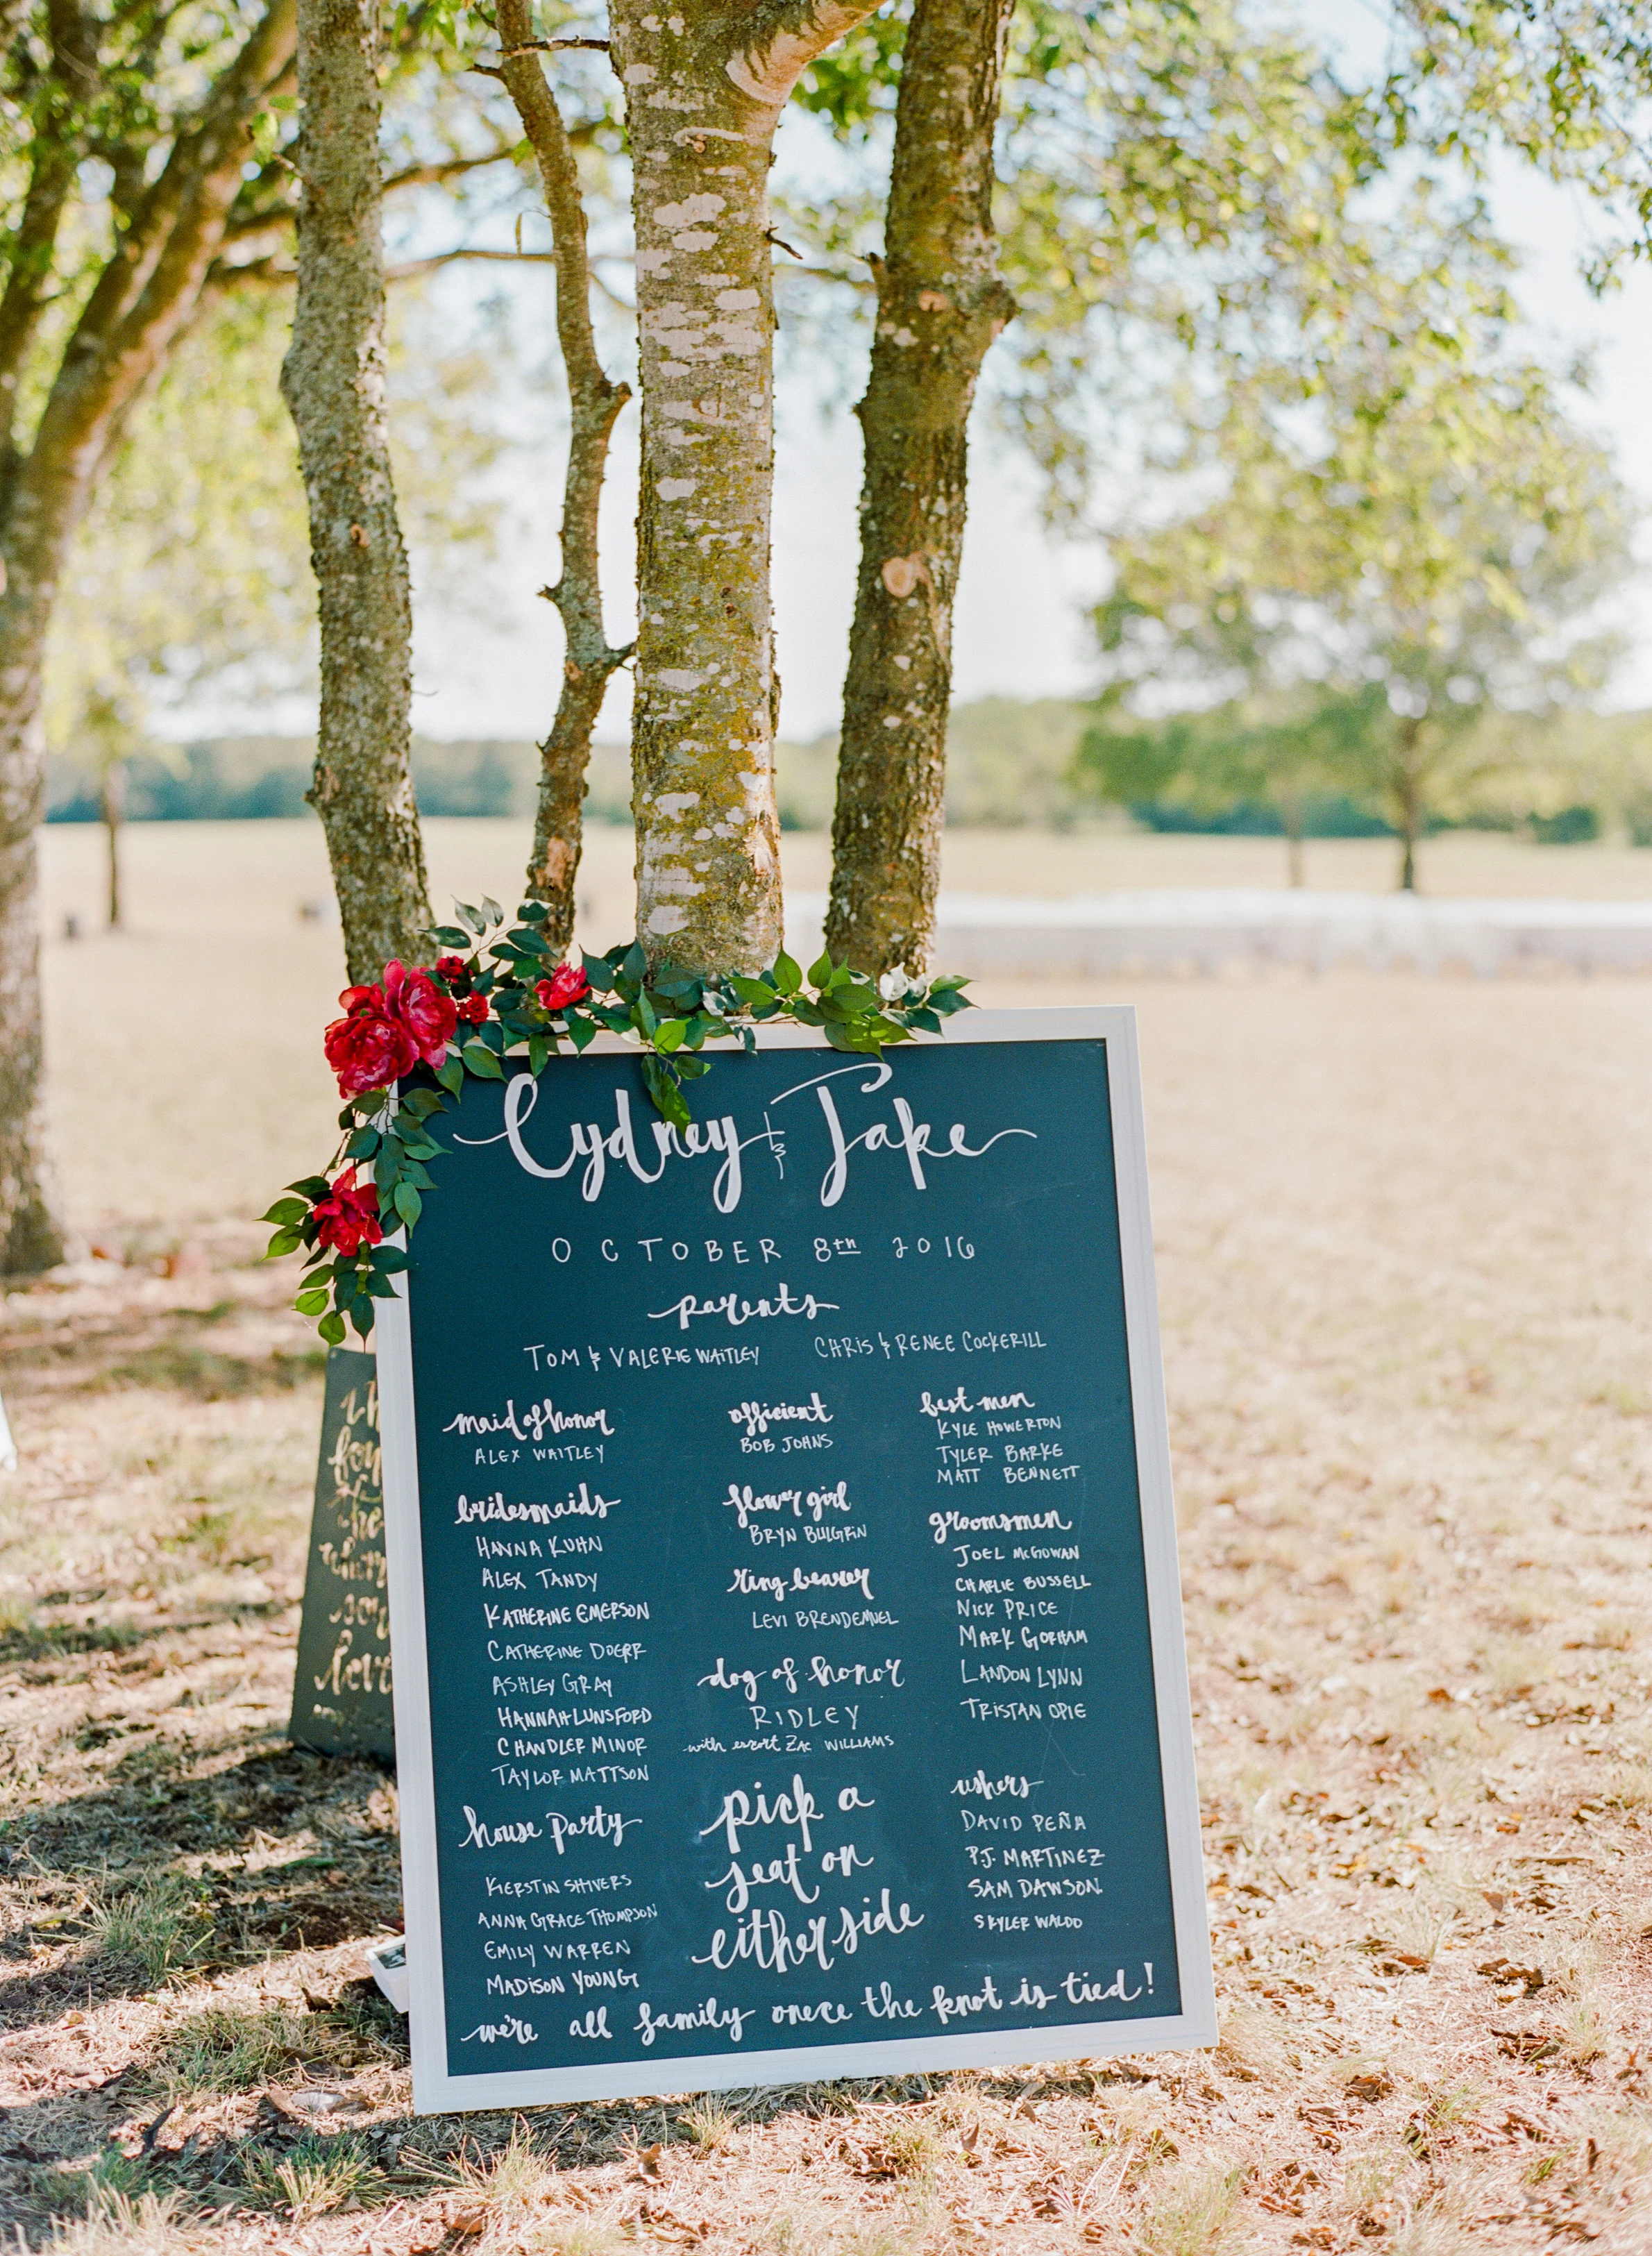 Cydney & Jake
OCTOBER 8th 2016
parents
TOM & VALERIE WAITLEY
CHRIS & RENEE COCKERILL
maid of honor
ALEX WAITLEY
bridesmaids
HANNA KUHN
ALEX TANDY
KATHERINE EMERSON
CATHERINE DOERR
ASHLEY GRAY
HANNAH LUNSFORD
CHANDLER MINOR
TAYLOR MATTSON
house party
KIERSTIN SHIVERS
ANNA GRACE THOMPSON
EMILY WARREN
MADISON YOUNG
officient
BOB JOHNS
flower girl
BRYN BULGRIN
ring bearer
LEVI BRENDEMUEL
dog of honor
RIDLEY
with escort ZAC WILLIAMS
pick a
seat on
either side
best men
KYLE HOWERTON
TYLER BARKE
MATT BENNETT
groomsmen
JOEL McGOWAN
CHARLIE BUSSELL
NICK PRICE
MARK GORHAM
LANDON LYNN
TRISTAN OPIE
ushers
DAVID PEÑA
P.J. MARTINEZ
SAM DAWSON
SKYLER WALDO
we're all family onece the knot is tied!